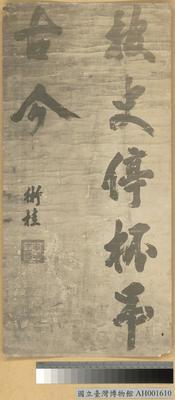 披史停杯平
古今
衡桂
國立臺灣博物館 AH001610